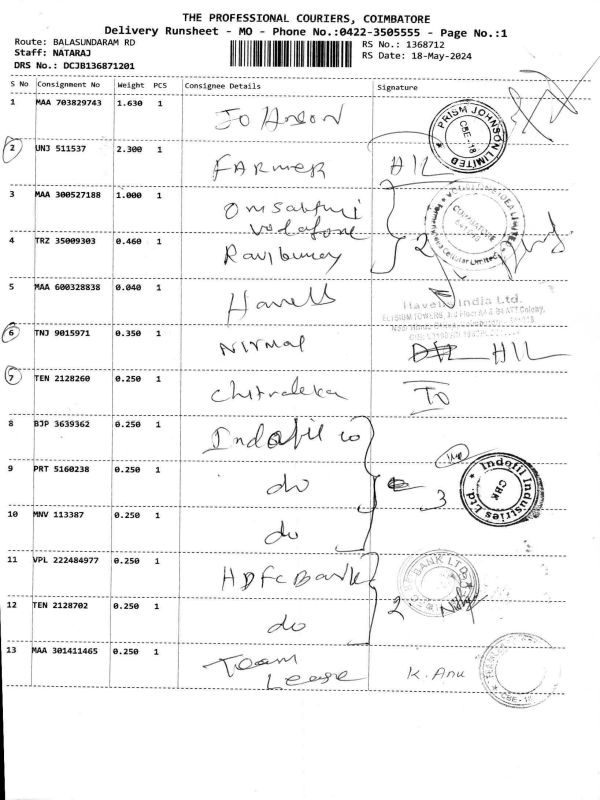 THE PROFESSIONAL COURIERS, COIMBATORE
Delivery Runsheet - MO - Phone No.:0422-3505555 - Page No.:1
Route: BALASUNDARAM RD
RS No.: 1368712
Staff: NATARAJ
RS Date: 18-May-2024
DRS No.: DCJB136871201
S No Consignment No Weight PCS Consignee Details Signature
1 MAA 703829743 1.630 1 Johnson
PRISM JOHNSON LIMITED CBE-18
2 UNJ 511537 2.300 1 FARMER HIL
3 MAA 300527188 1.000 1 Omsakthi
vodafone
COIMBATORE
4 TRZ 35009303 0.460 1 2
5 MAA 600328838 0.040 1 Havells
Havells India Ltd.
ELYSIUM TOWERS, 3rd Floor
6 TNJ 9015971 0.350 1 Nirmal HIL
7 TEN 2128260 0.250 1 Chitraleka
8 BJP 3639362 0.250 1 Indofil
9 PRT 5160238 0.250 1 do 3
Indofil Industries Ltd. CBK
10 MNV 113387 0.250 1 do
11 VPL 222484977 0.250 1 HDFC Bank
BANK LTD
12 TEN 2128702 0.250 1 do 2
13 MAA 301411465 0.250 1 Team
Lease K. Anu
CBE-18